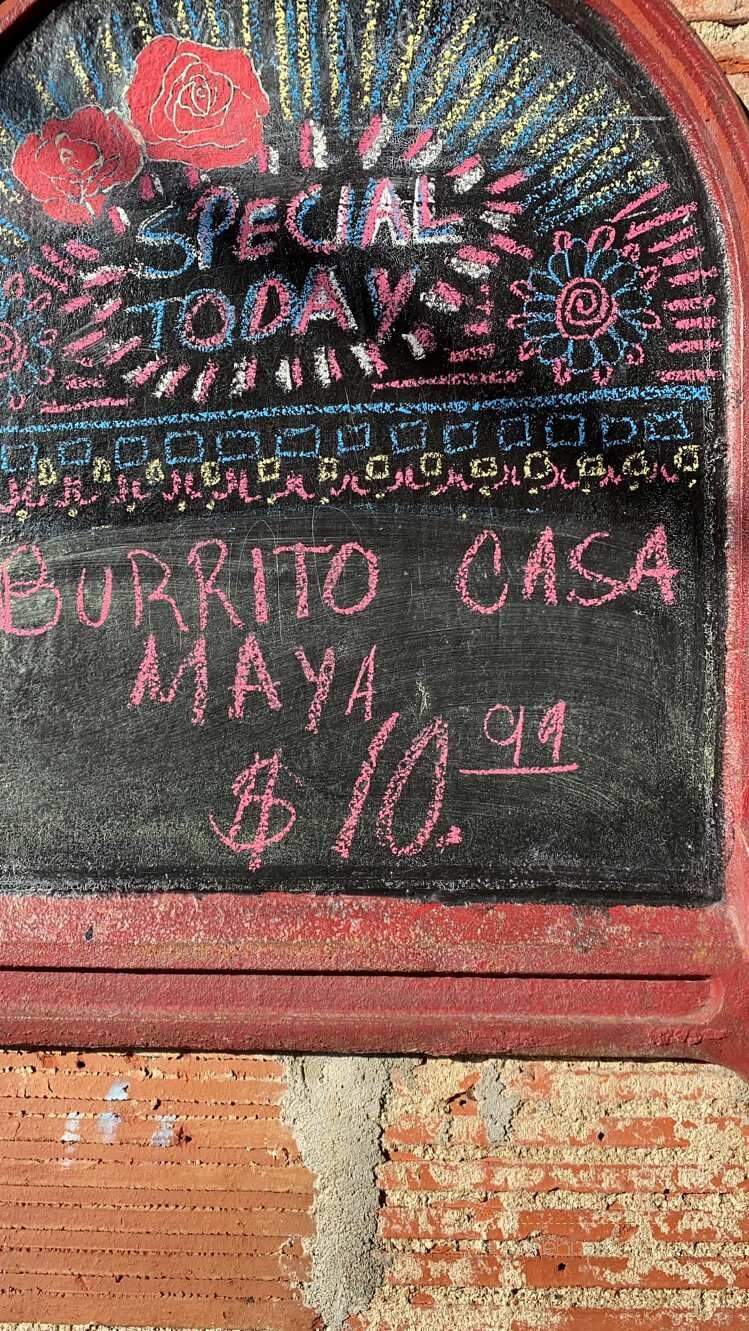 SPECIAL
TODAY.
BURRITO CASA
MAYA
$10.99